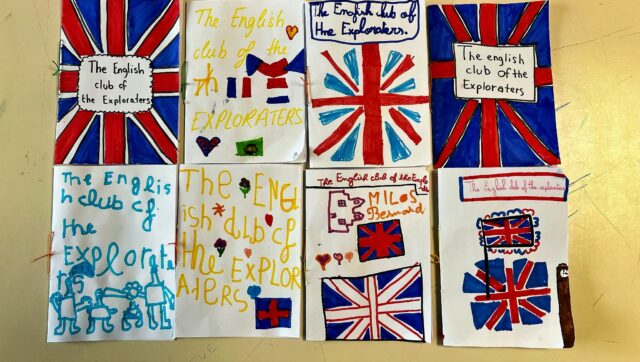 The English
club of
the Exploraters
The English
club of the
EXPLORATERS
The English club of
the Exploraters.
The english
club of the
Exploraters
The Englis
h club of
the
Explorate
rs
The ENGL
ish club of
the EXPLOR
ATERS
The English club of the Explo
MILOS
Bernard
The English club of the exploraters